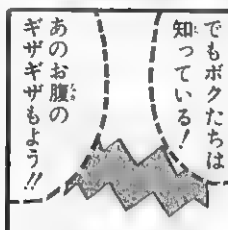 でもボクたちは
知っている!
あのお腹の
ギザギザもよう!!